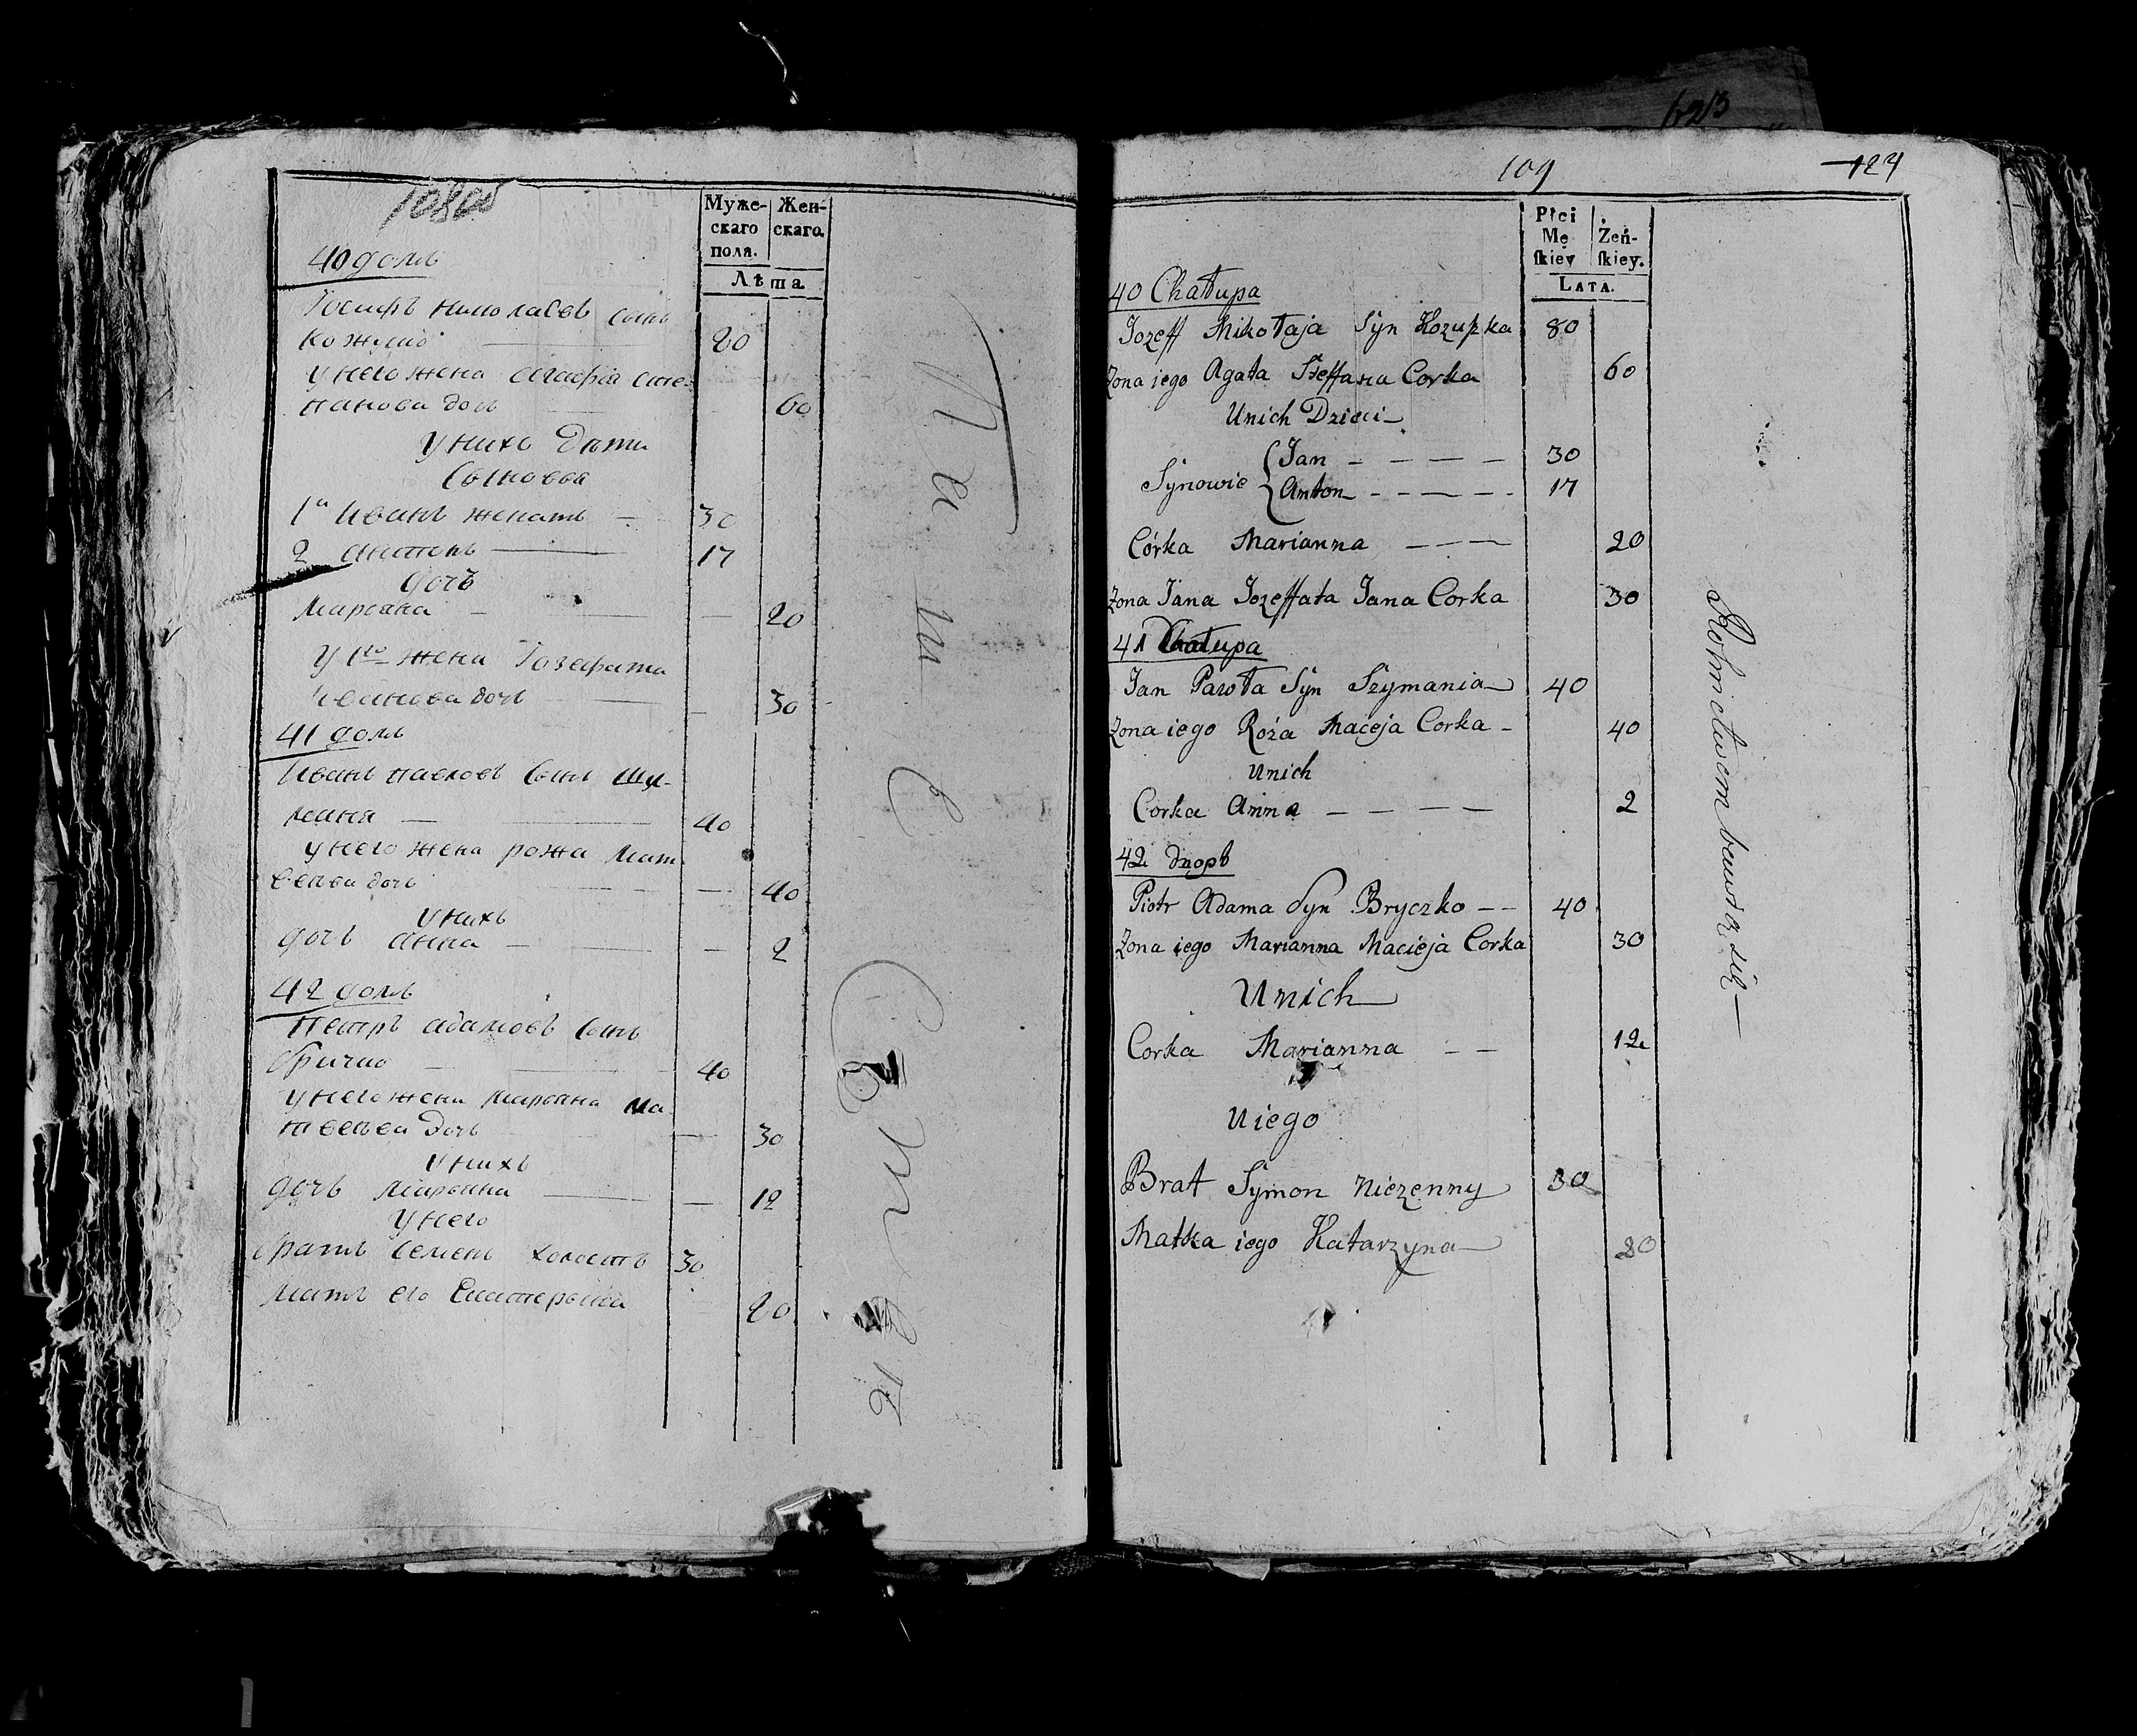 108 об
Муже-
скаго
поля.
Жен-
скаго.
Лѣта.
40 домъ
Іосифъ Николаевъ сынъ
Кожушко 80
у него жена Агафія Сте-
панова дочь 60
у нихъ дѣти
Сыновья
1й Иванъ женатъ 30
2 Антонъ 17
дочь
Марьяна 20
У 1го жена Іозефата
Иванова дочь 30
41 домъ
Иванъ Павловъ сынъ Шы-
маня 40
у него жена Рожа Мат-
веева дочь 40
у нихъ
дочь Анна 2
42 домъ
Петръ Адамовъ сынъ
Бричко 40
у него жена Марьяна Ма-
твеева дочь 30
у нихъ
дочь Марьяна 12
у него
братъ Семенъ холостъ 30
мать его Екатерына 80
109
124
Płci
Mę
skiey
Żeń-
skiey.
LATA.
40 Chałupa
Jozeff Mikołaja Syn Kozuszka 80
Zona iego Agata Steffana Corka 60
Unich Dzieci
Synowie Jan 30
Anton 17
Córka Marianna 20
Zona Jana Jozeffata Jana Corka 30
41 Chałupa
Jan Pawła Syn Szymania 40
Zona iego Roża Macieja Corka 40
Unich
Corka Anna 2
42
Piotr Adama Syn Bryczko 40
Zona iego Marianna Macieja Corka 30
Unich
Corka Marianna 12
Uiego
Brat Symon Niezenny 30
Matka iego Katarzyna 80